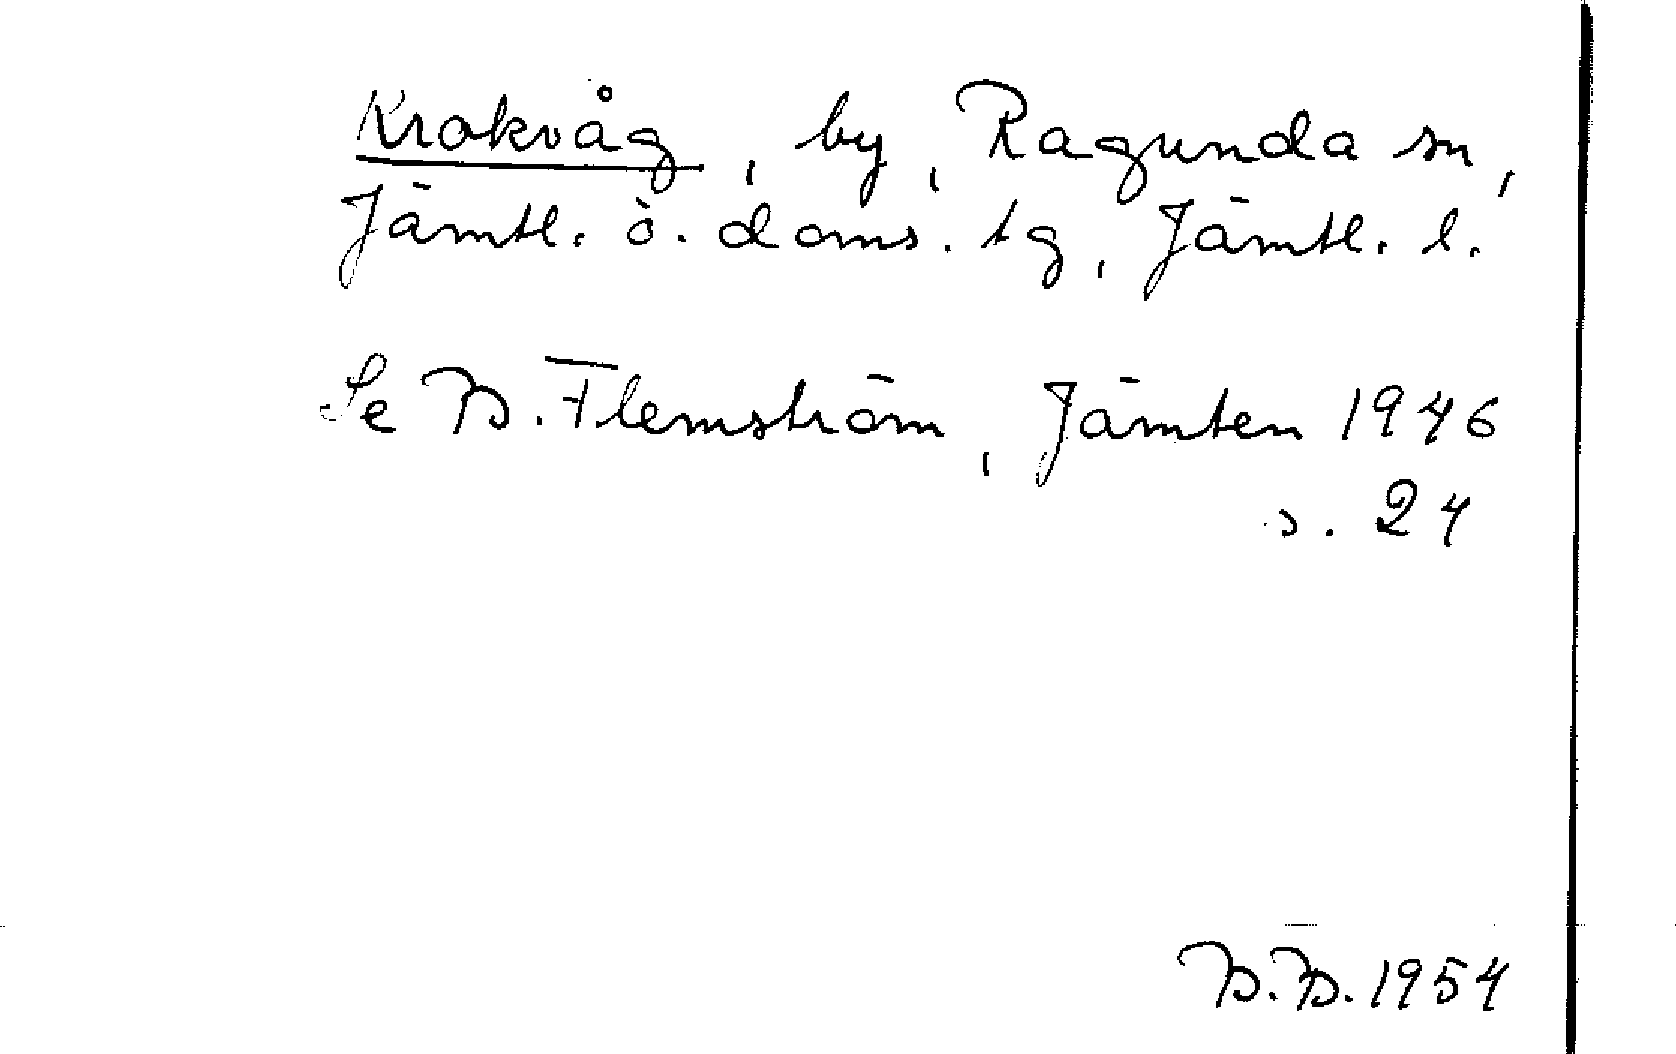 Krokvåg, by, Ragunda sn,
Jämtl. ö. doms. tg, Jämtl. l.
Se B. Flemström, Jämten 1946
s. 24
B.B. 1954